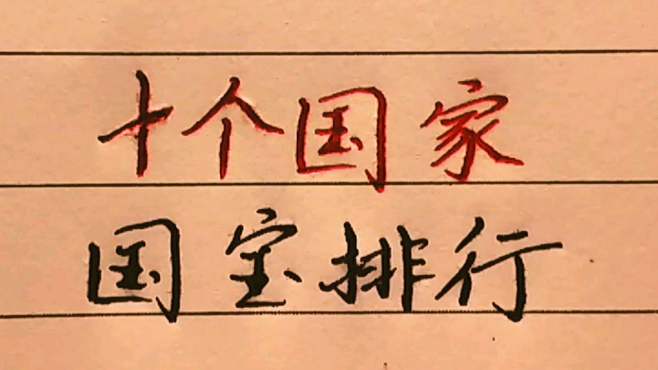 十个国家
国宝排行